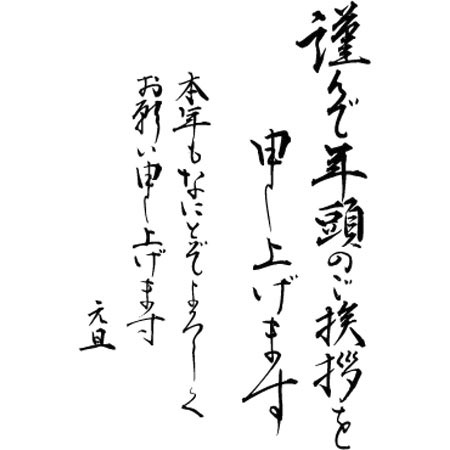 謹んで年頭のご挨拶を
申し上げます
本年もなにとぞよろしく
お願い申し上げます
元旦